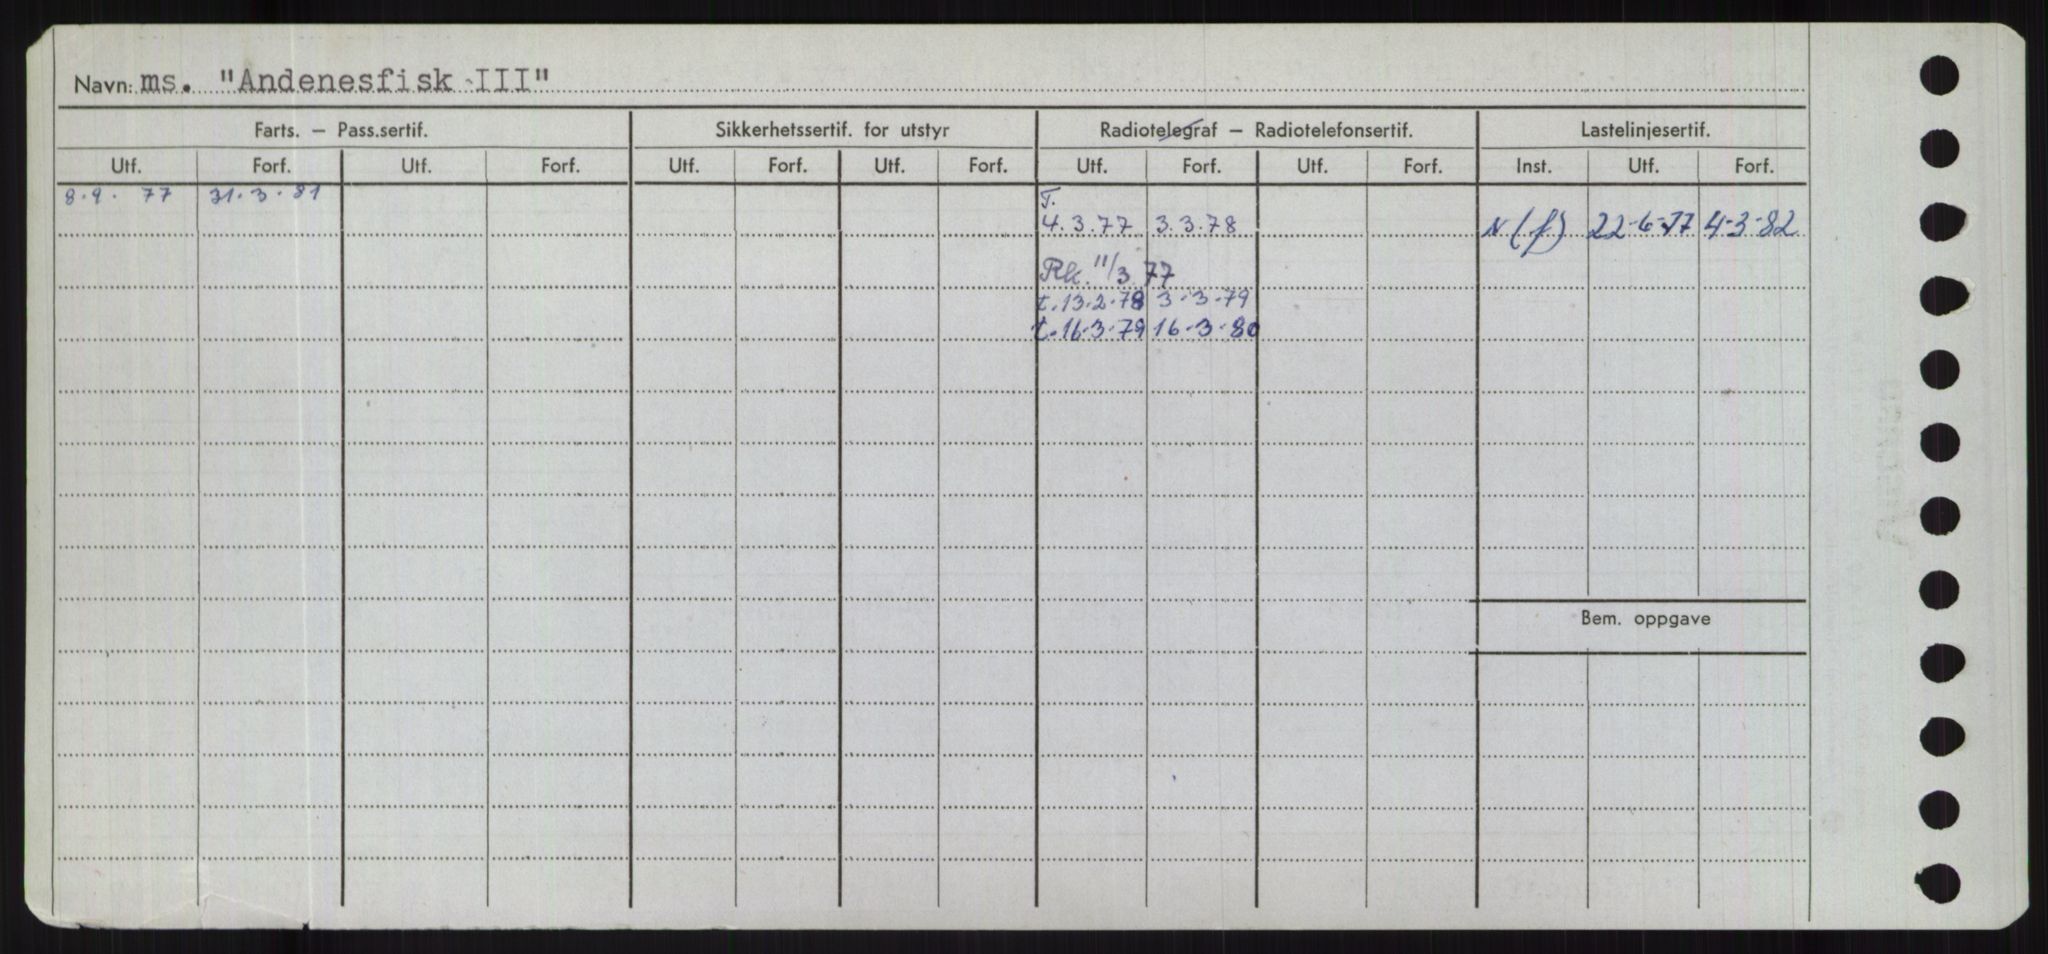 Navn: ms. "Andenesfisk III"
Farts. – Pass.sertif. Sikkerhetssertif. for utstyr Radiotelegraf – Radiotelefonsertif. Lastelinjesertif.
Utf. Forf. Utf. Forf. Utf. Forf. Utf. Forf. Utf. Forf. Utf. Forf. Inst. Utf. Forf.
8.9. 77 31.3.81 T.
4.3.77 3.3.78 N(f) 22-6-77 4-3-82
Rk. 11/3 77
t.13.2.78 3-3-79
t.16.3.79 16-3-80
Bem. oppgave